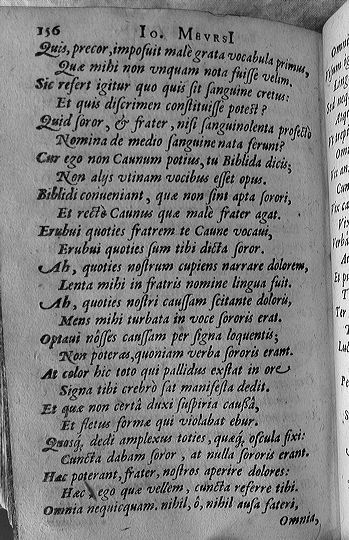 156 Io. MEVRSI
Quis, precor, imposuit malè grata vocabula primus,
Quæ mihi non unquam nota fuisse velim.
Sic refert igitur quo quis sit sanguine cretus:
Et quis discrimen constituisse potest?
Quid soror, & frater, nisi sanguinolenta profectò
Nomina de medio sanguine nata ferunt?
Cur ego non Caunum potius, tu Biblida dicis;
Non alijs utinam vocibus esset opus.
Biblidi conueniant, quæ non sint apta sorori,
Et rectè Caunus quæ malè frater agat.
Erubui quoties fratrem te Caune vocaui,
Erubui quoties sum tibi dicta soror.
Ah, quoties nostrum cupiens narrare dolorem,
Lenta mihi in fratris nomine lingua fuit.
Ah, quoties nostri caussam scitante dolorû,
Mens mihi turbata in voce sororis erat.
Optaui nôsses caussam per signa loquentis;
Non poteras, quoniam verba sororis erant.
At color hic toto qui pallidus exstat in ore
Signa tibi crebrò sat manifesta dedit.
Et quæ non certâ duxi suspiria caussâ,
Et fletus formæ qui violabat ebur.
Quosq; dedi amplexus toties, quæq; oscula fixi:
Cuncta dabam soror, at nulla sororis erant.
Hæc poterant, frater, nostros aperire dolores:
Hæc, ego quæ vellem, cuncta referre tibi.
Omnia nequicquam. nihil, ô, nihil ausa fateri,
Omnia,